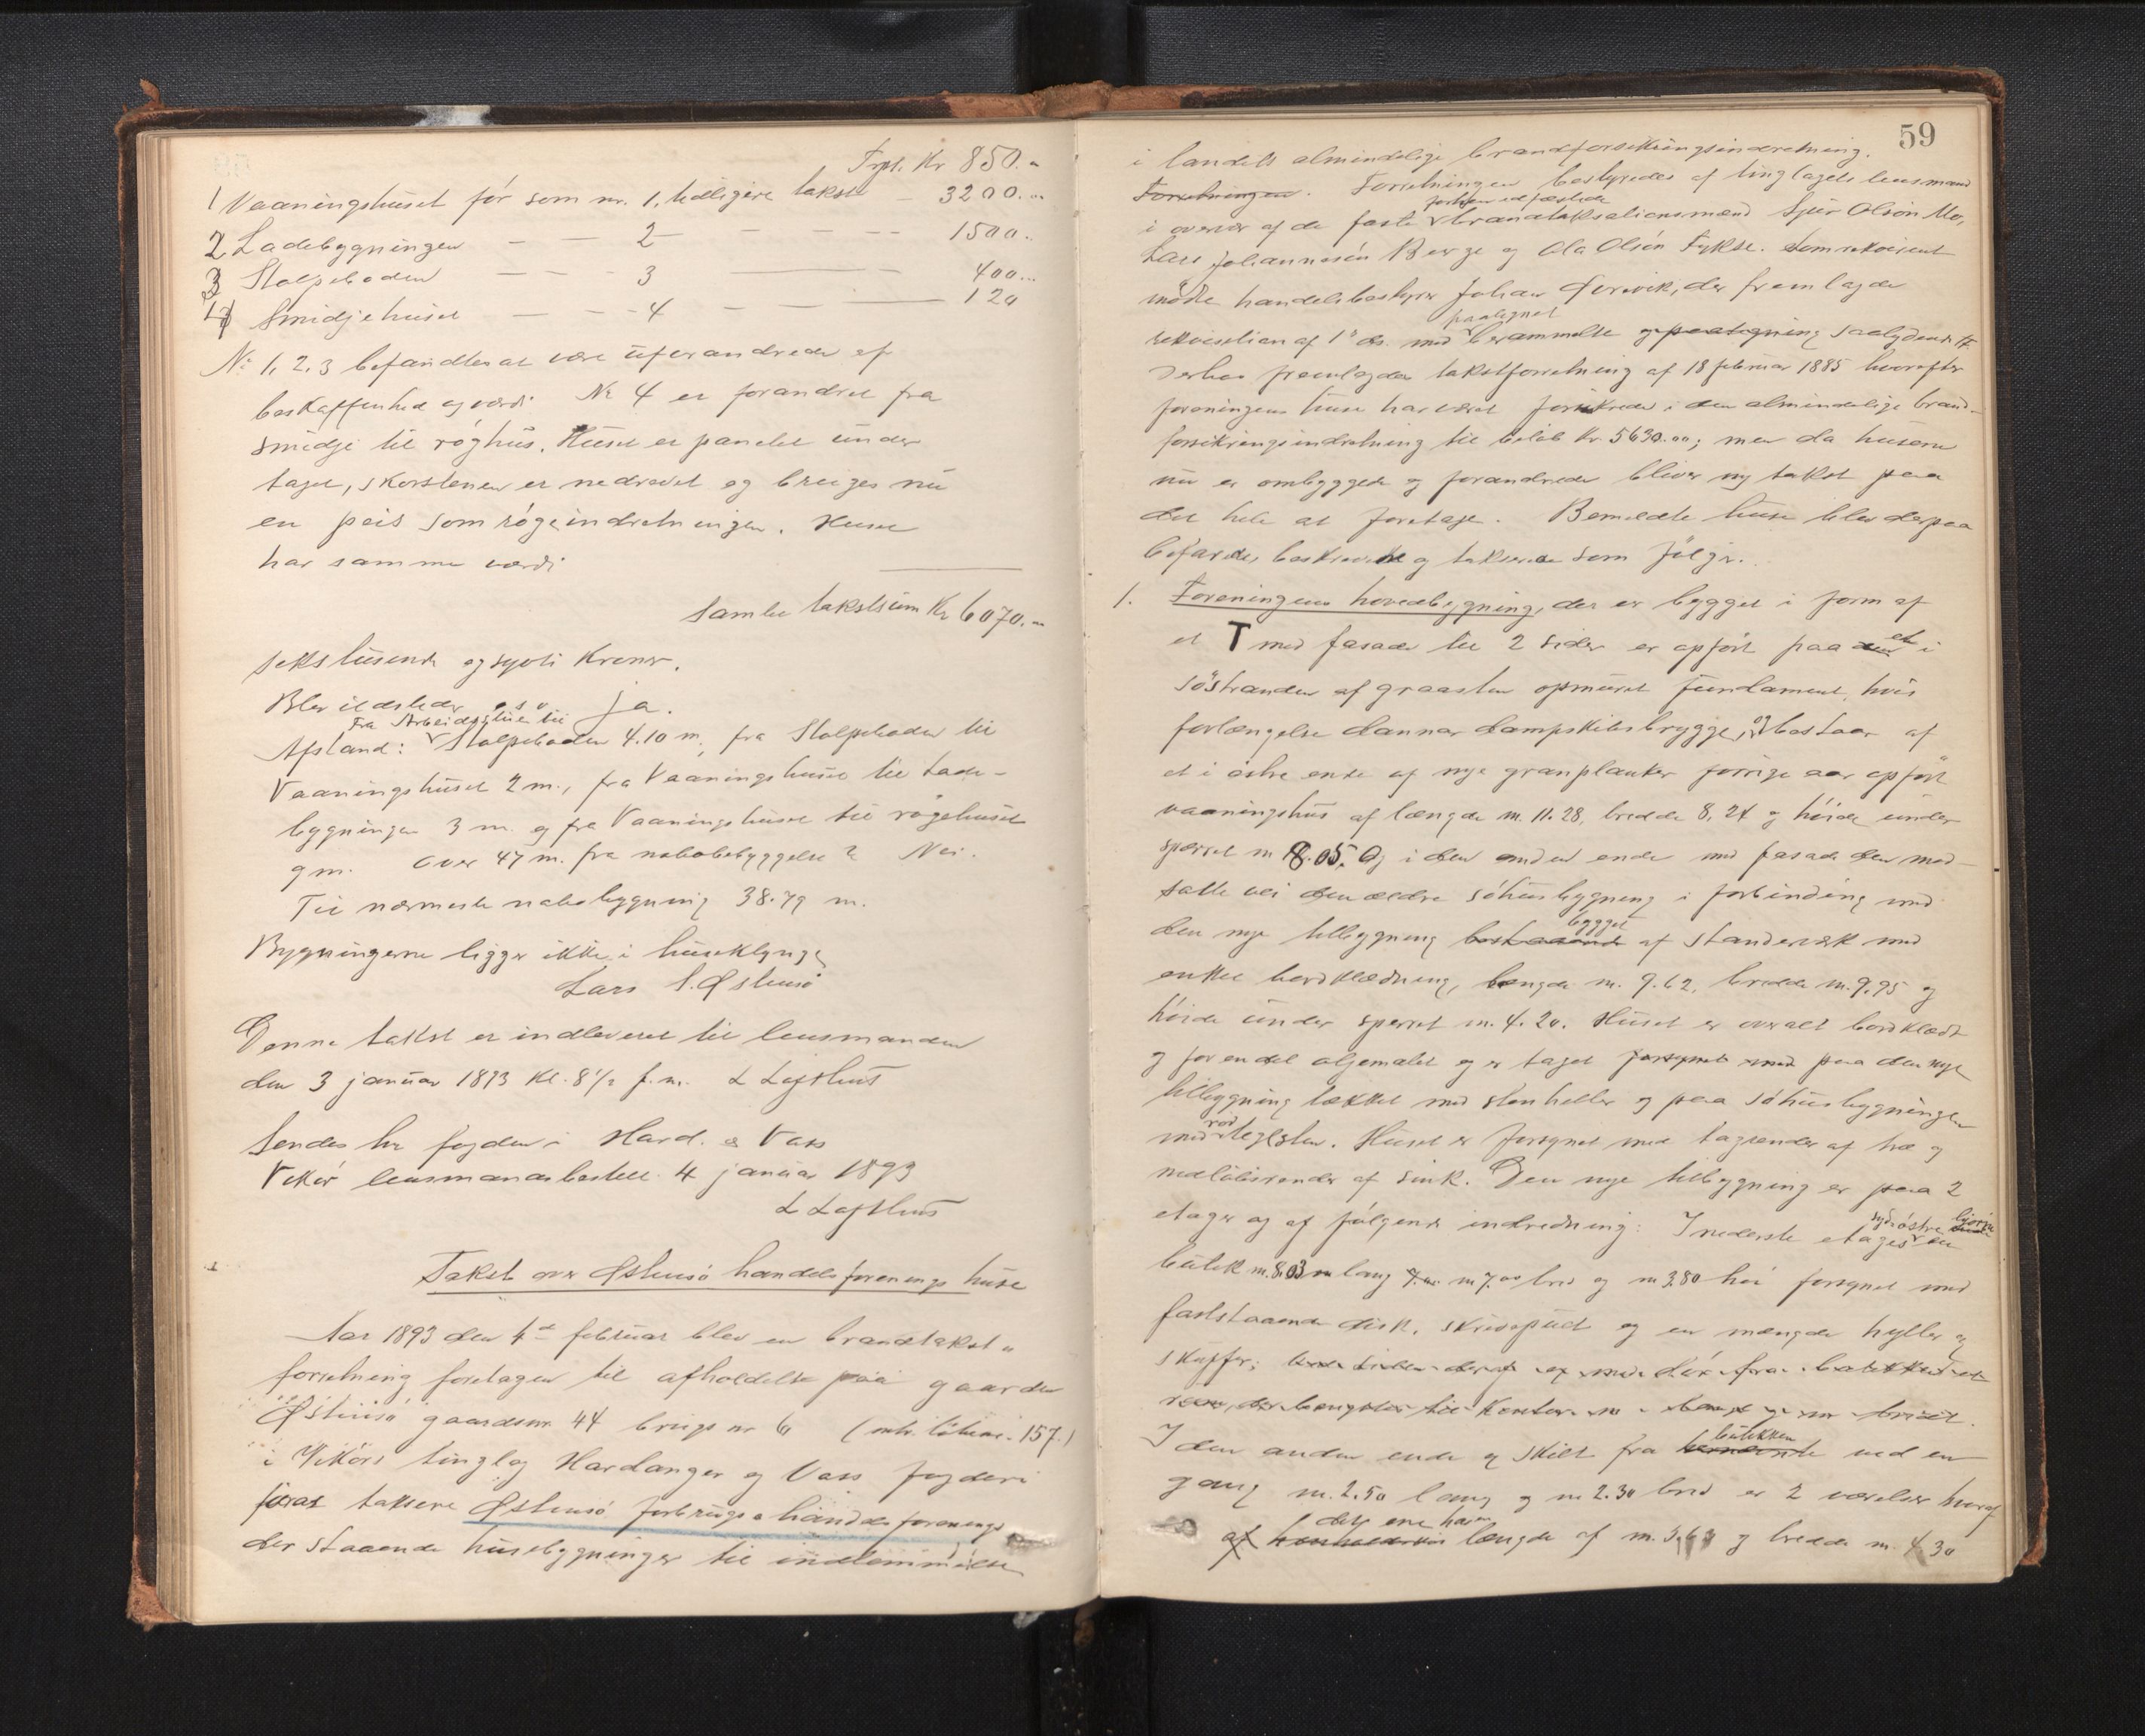 Trpt. Kr 850.„
1 Vaaningshuset før som nr. 1, tidligere takst – 3200.„
2 Ladebygningen — — 2 – – – 1500.
3 Stolpeboden — – – 3 ——— 400...
4 Smidjehuset — – – 4 – — 120
No 1, 2, 3 befandtes at være uforandrede af
beskaffenhed og værdi. No 4 er forandret fra
smidje til røghus. Huset er panelet under
taget, skorstenen er nedrevet og bruges nu
en peis som røgeindretningen. Huset
har samme værdi
Samlet takstsum Kr 6070.„
sekstusende og sytti Kroner.
Blev ildsteder o s v ja.
Fra Arbeidsstuen til
Afstand: Stolpeboden 4.10 m, fra Stolpeboden til
Vaaningshuset 2 m., fra Vaaningshuset til Lade-
bygningen 3 m. og fra Vaaningshuset til røgehuset
9 m. Over 47 m. fra nabobebyggelse? Nei.
Til nærmeste nabobygning 38.79 m.
Bygningerne ligger ikke i huseklynge
Lars L. Østensø
Denne takst er indleveret til lensmanden
den 3 januar 1893 Kl. 8 1/2 f.m. L Lofthus
Sendes hr fogden i Hard. & Voss
Vikør lensmandsbestill. 4 januar 1893
L Lofthus
Takst over Østensø handelsforenings huse
Aar 1893 den 4de februar blev en brandtakst-
forretning foretagen til afholdelse paa gaarden
Østensø gaardsnr. 44 brugs nr 6 (mtr. løbenr. 157.)
i Vikørs tinglag Hardanger og Voss fogderi
for at taksere Østensø forbrugs & handelsforenings
der staaende husebygninger til indlemmelse
59
i landets almindelige brandforsikringsindretning.
Forretningen. Forretningen bestyredes af tinglagets lensmand
i overvær af de faste brandtaksationsmænd Sjur Olsøn Mo,
Lars Johannesøn Berge og Ola Olsøn Fykse. Som rekvirent
mødte handelsbestyrer Johan, der fremlagde
paategnet
rekvisition af 1ste ds. med berammelse og paategning saalydende
Derhos fremlagdes takstforretning af 18 februar 1885 hvorefter
foreningens huse har været forsikrede i den almindelige brand-
forsikringsindretning til beløb Kr. 5630.00; men da husene
nu er ombyggede og forandrede bliver ny takst paa
det hele at foretage. Bemeldte huse blev derpaa
befarede, beskrevne og takserede som følger.
1. Foreningens hovedbygning, der er bygget i form af
et T med fasade til 2 sider er opført paa et i
søstranden af graasten opmuret fundament, hvis
forlængelse danner dampskibsbrygge, og bestaar af
et i østre ende af nye granplanker forrige aar opført
vaaningshus af længde m. 11.28, bredde 8,24 og høide under
sperret m 8.05. Og i den anden ende med fasade den mod-
satte vei den ældre søhusbygning i forbinding med
bygget
den nye tilbygning bestaaende af standerværk med
enkel bordklædning, længde m. 9.62, bredde m. 9,95 og
høide under sperret m. 4.20. Huset er overalt bordklædt
og for en del oljemalet og er taget forsynet med paa den nye
tilbygning tækket med stenheller og paa søhusbygningen
med rød teglsten. Huset er forsynet med tagrender af træ og
nedløbsrender af sink. Den nye tilbygning er paa 2
etager og af følgende indredning: I nederste etages sydøstre hjørne en
butik m. 8.03 lang m 7.00 bred og m 3.80 høi forsynet med
faststaaende disk, skrivepult og en mængde hyller og
skuffer;
butikken
I den anden ende og skilt fra ved en
gang m. 2.50 lang og m 2.30 bred er 2 værelser hvoraf
det ene har en
længde af m. 3.63 og bredde m. 4.30